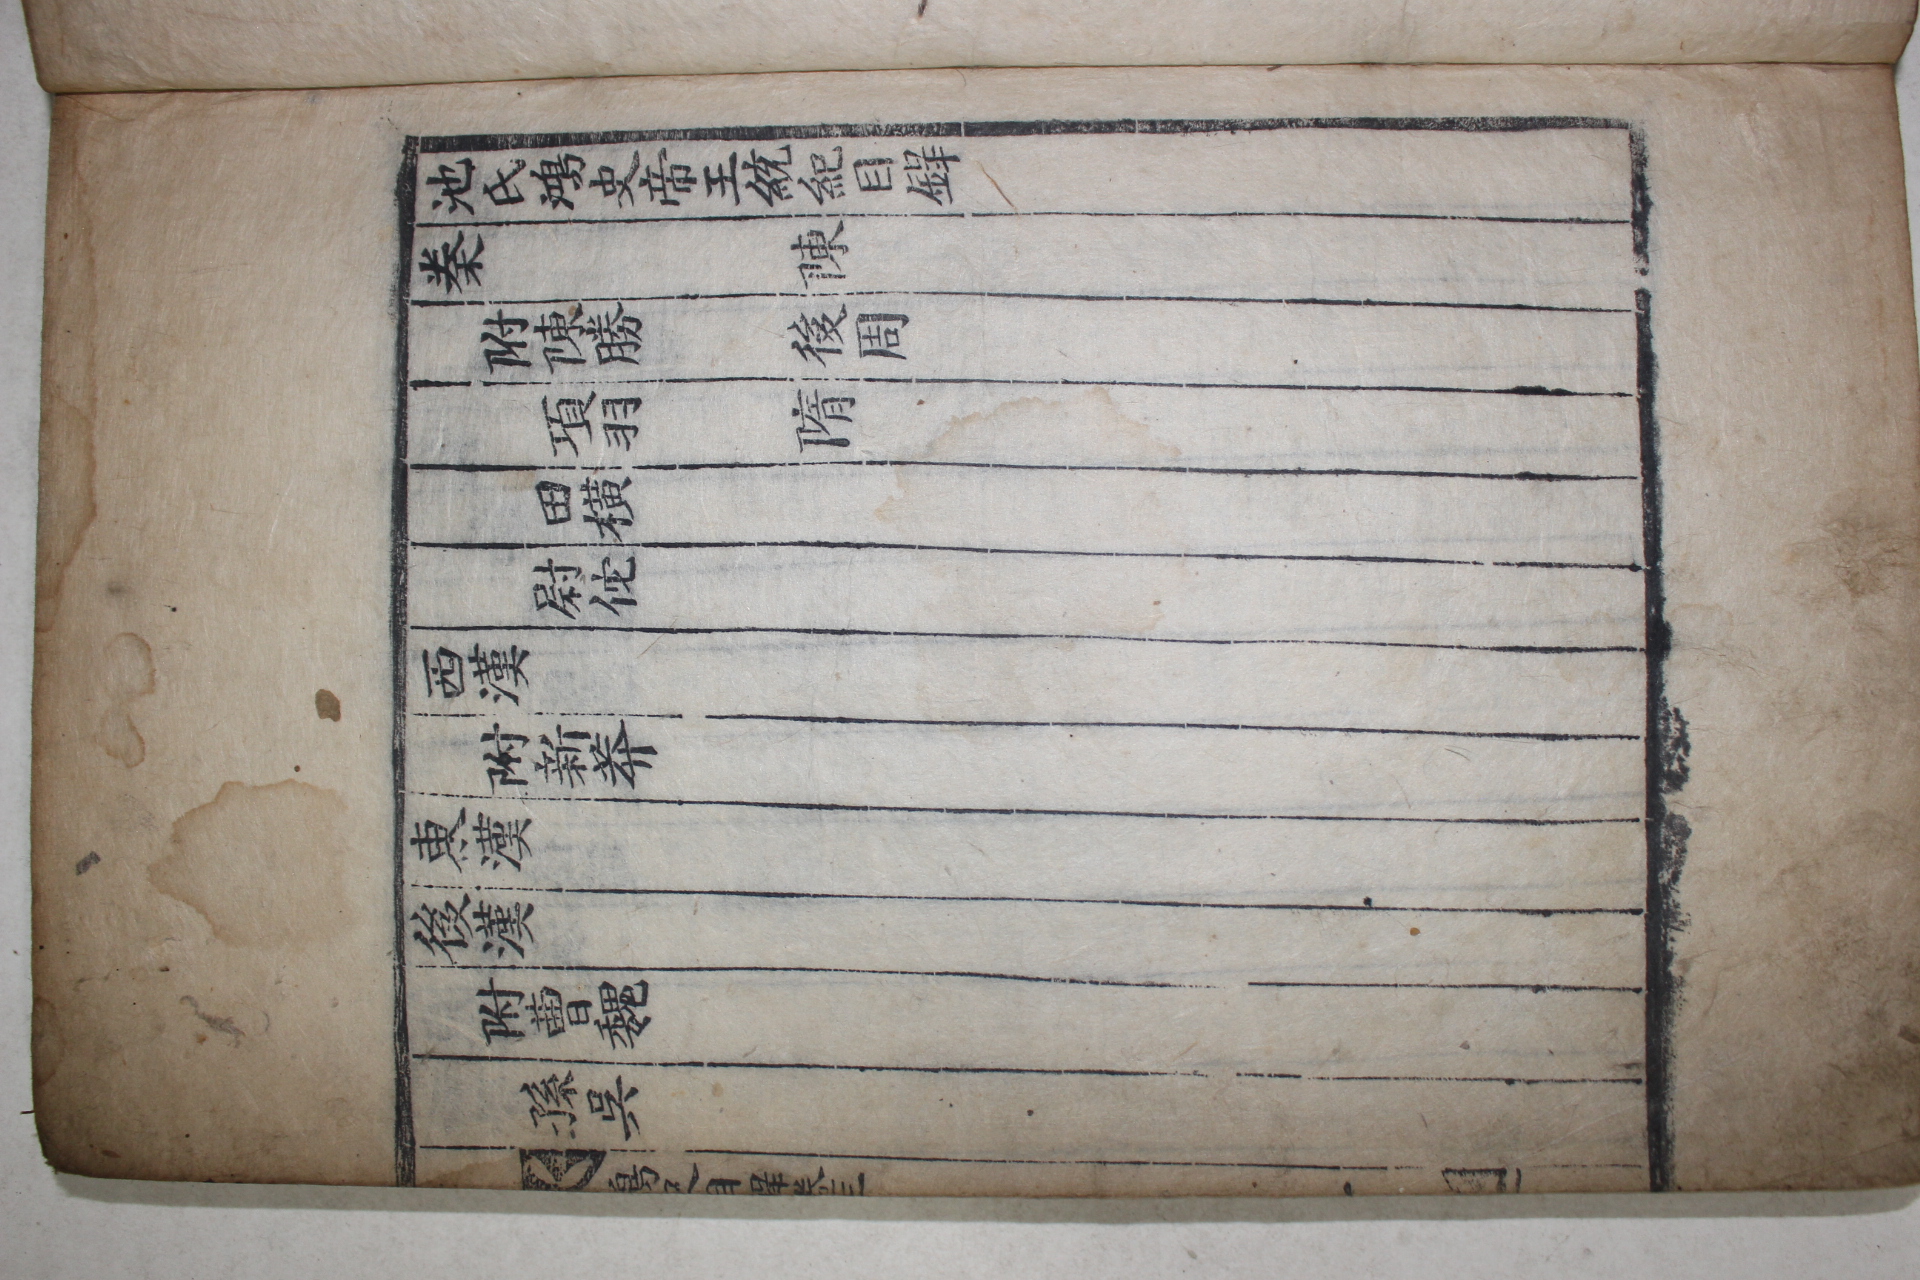 池氏鴻史帝王統紀目録
秦 陳
附陳勝 後周
項羽 隋
田横
尉佗
西漢
附新莽
東漢
後漢
附曹魏
孫吳
鴻史目録卷三